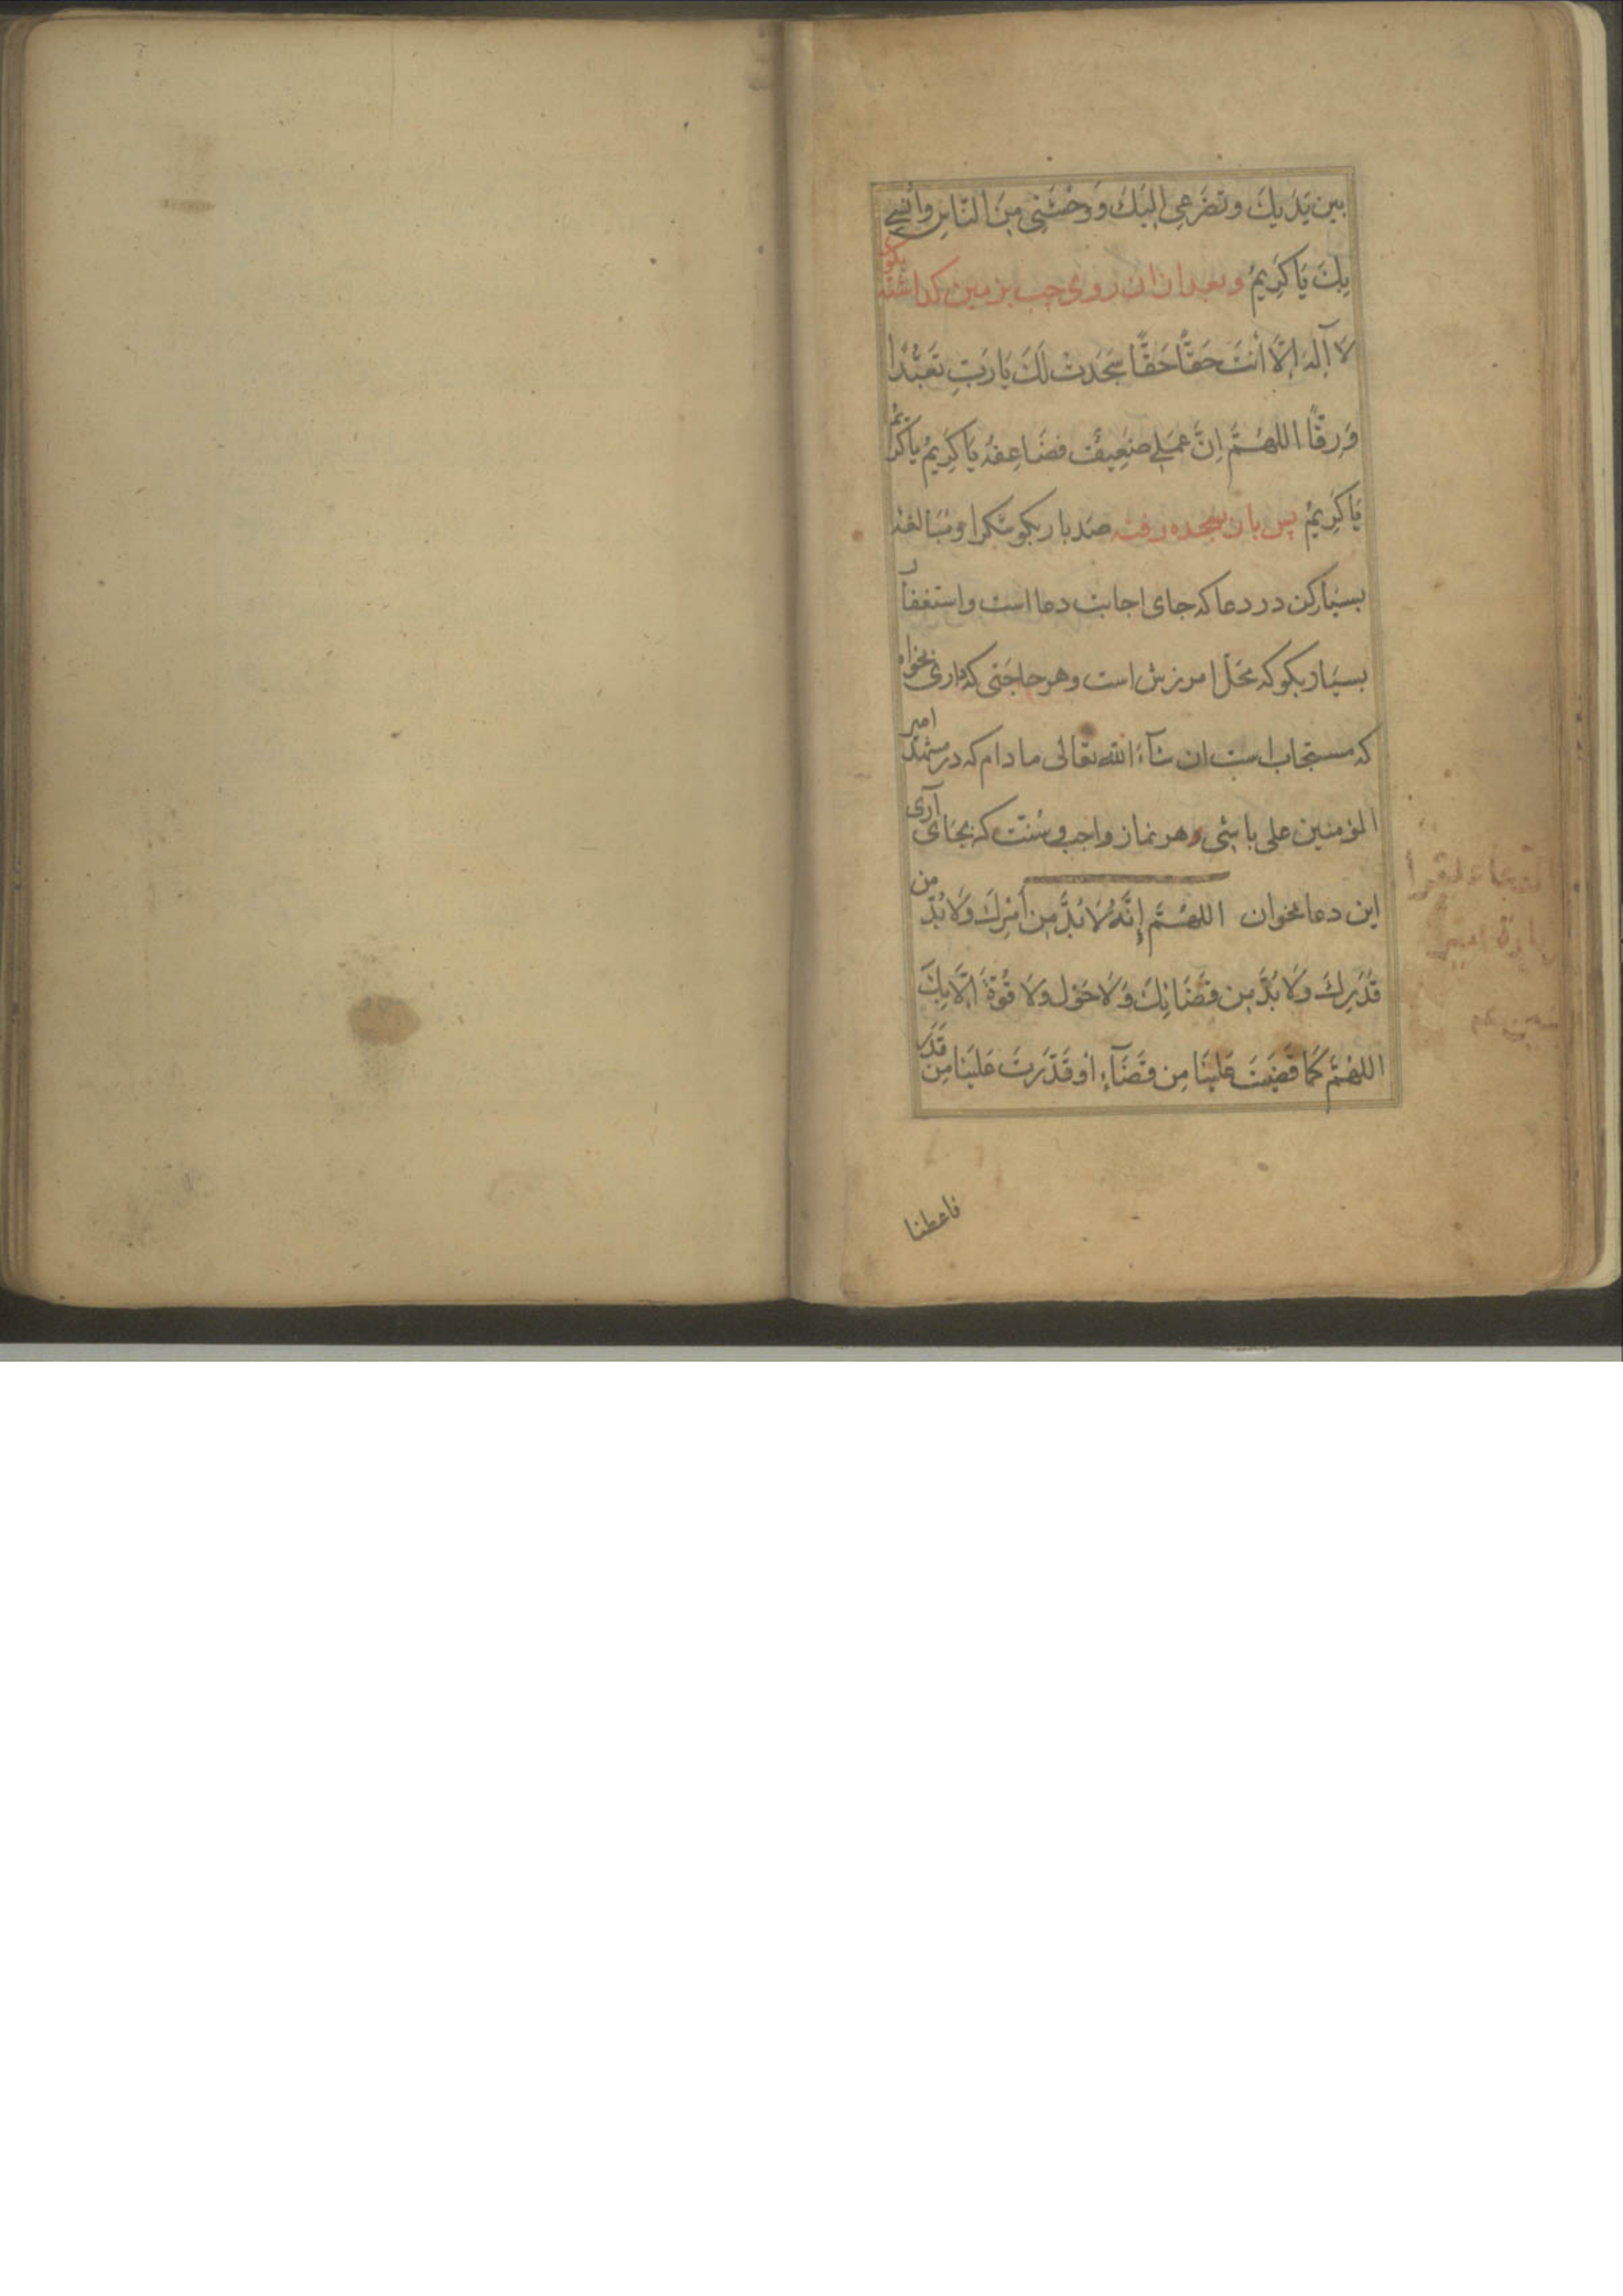 بين يَدَيكَ وتضرّعى اليَكَ وَوَحْشَتِى مِنَ النّاسِ واُنسِى
بِكَ يَا كَرِيمُ وبعد ازان روى چپ بر زمين كذاشته بكوى
لَا اِلٰهَ اِلَّا اَنْتَ حَقًّا حَقًّا سَجَدتُ لَكَ يَا رَبِّ تَعَبُّدًا
وَرِقًّا اللهُمَّ اِنَّ عَمَلِى ضَعِيفٌ فضَاعِفهُ يَا كَرِيمُ يا كَرِيمُ
يَا كَرِيمُ پس باز بسجده رفته صَد بار بكو شكرا ومُبَالغه
بسيَار كن در دعا كه جاى اجابت دعا است واستغفار
بسيَار بكو كه محَلّ امرزش است وهر حاجَتى كه دارى بخواه
كه مستجاب است ان شآء الله تعالى ما دام كه در مشهد امير
المؤمنين على باشى وهر نماز واجب وسُنّت كه بجاى آرى
اين دعا بخوان اللهُمَّ اِنَّهُ لَا بُدَّ مِن اَمْرِكَ وَلَا بُدَّ مِن
قَدَرِكَ وَلَا بُدَّ مِن قضَائِكَ وَلَا حَوْل وَلَا قُوَّةَ اِلَّا بِكَ
اللهُمَّ كَمَا قضَيتَ عَليَنَا مِن قَضَآءٍ اَو قَدَّرتَ عَليَنَا مِن قَدَرٍ
فاعطنا